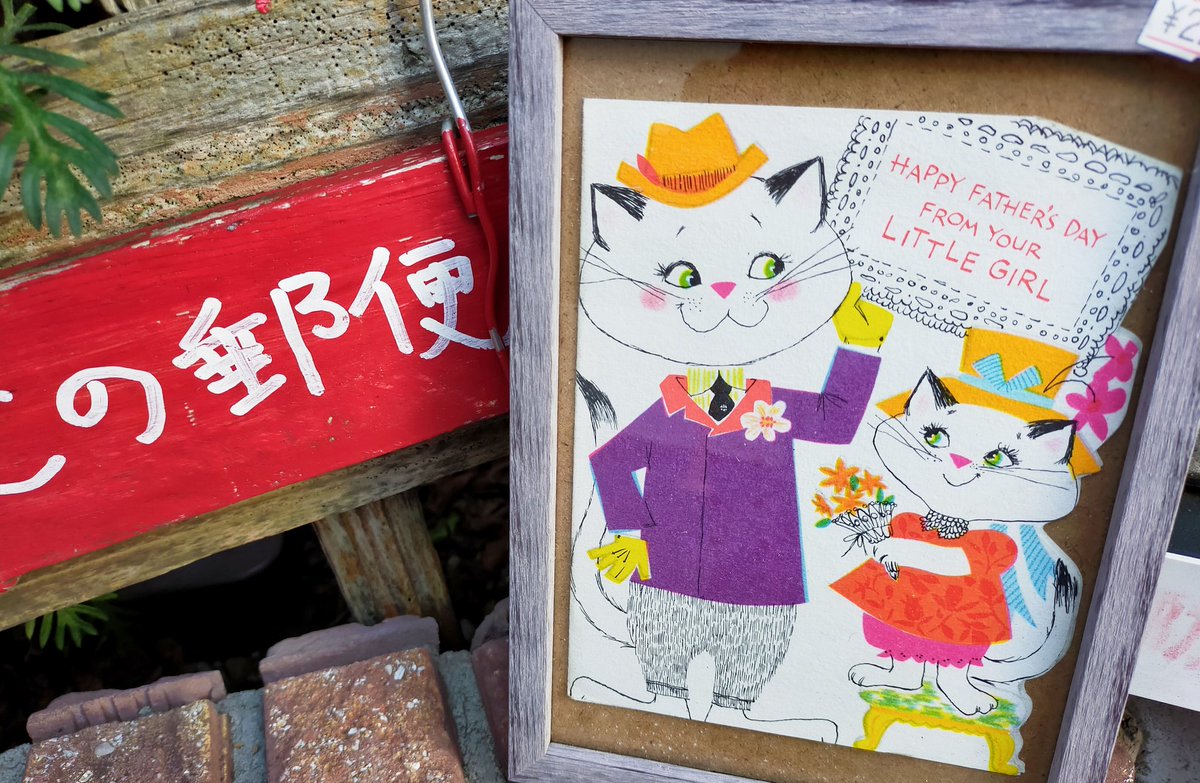 の郵便
HAPPY FATHER'S DAY
FROM YOUR
LITTLE GIRL
¥2